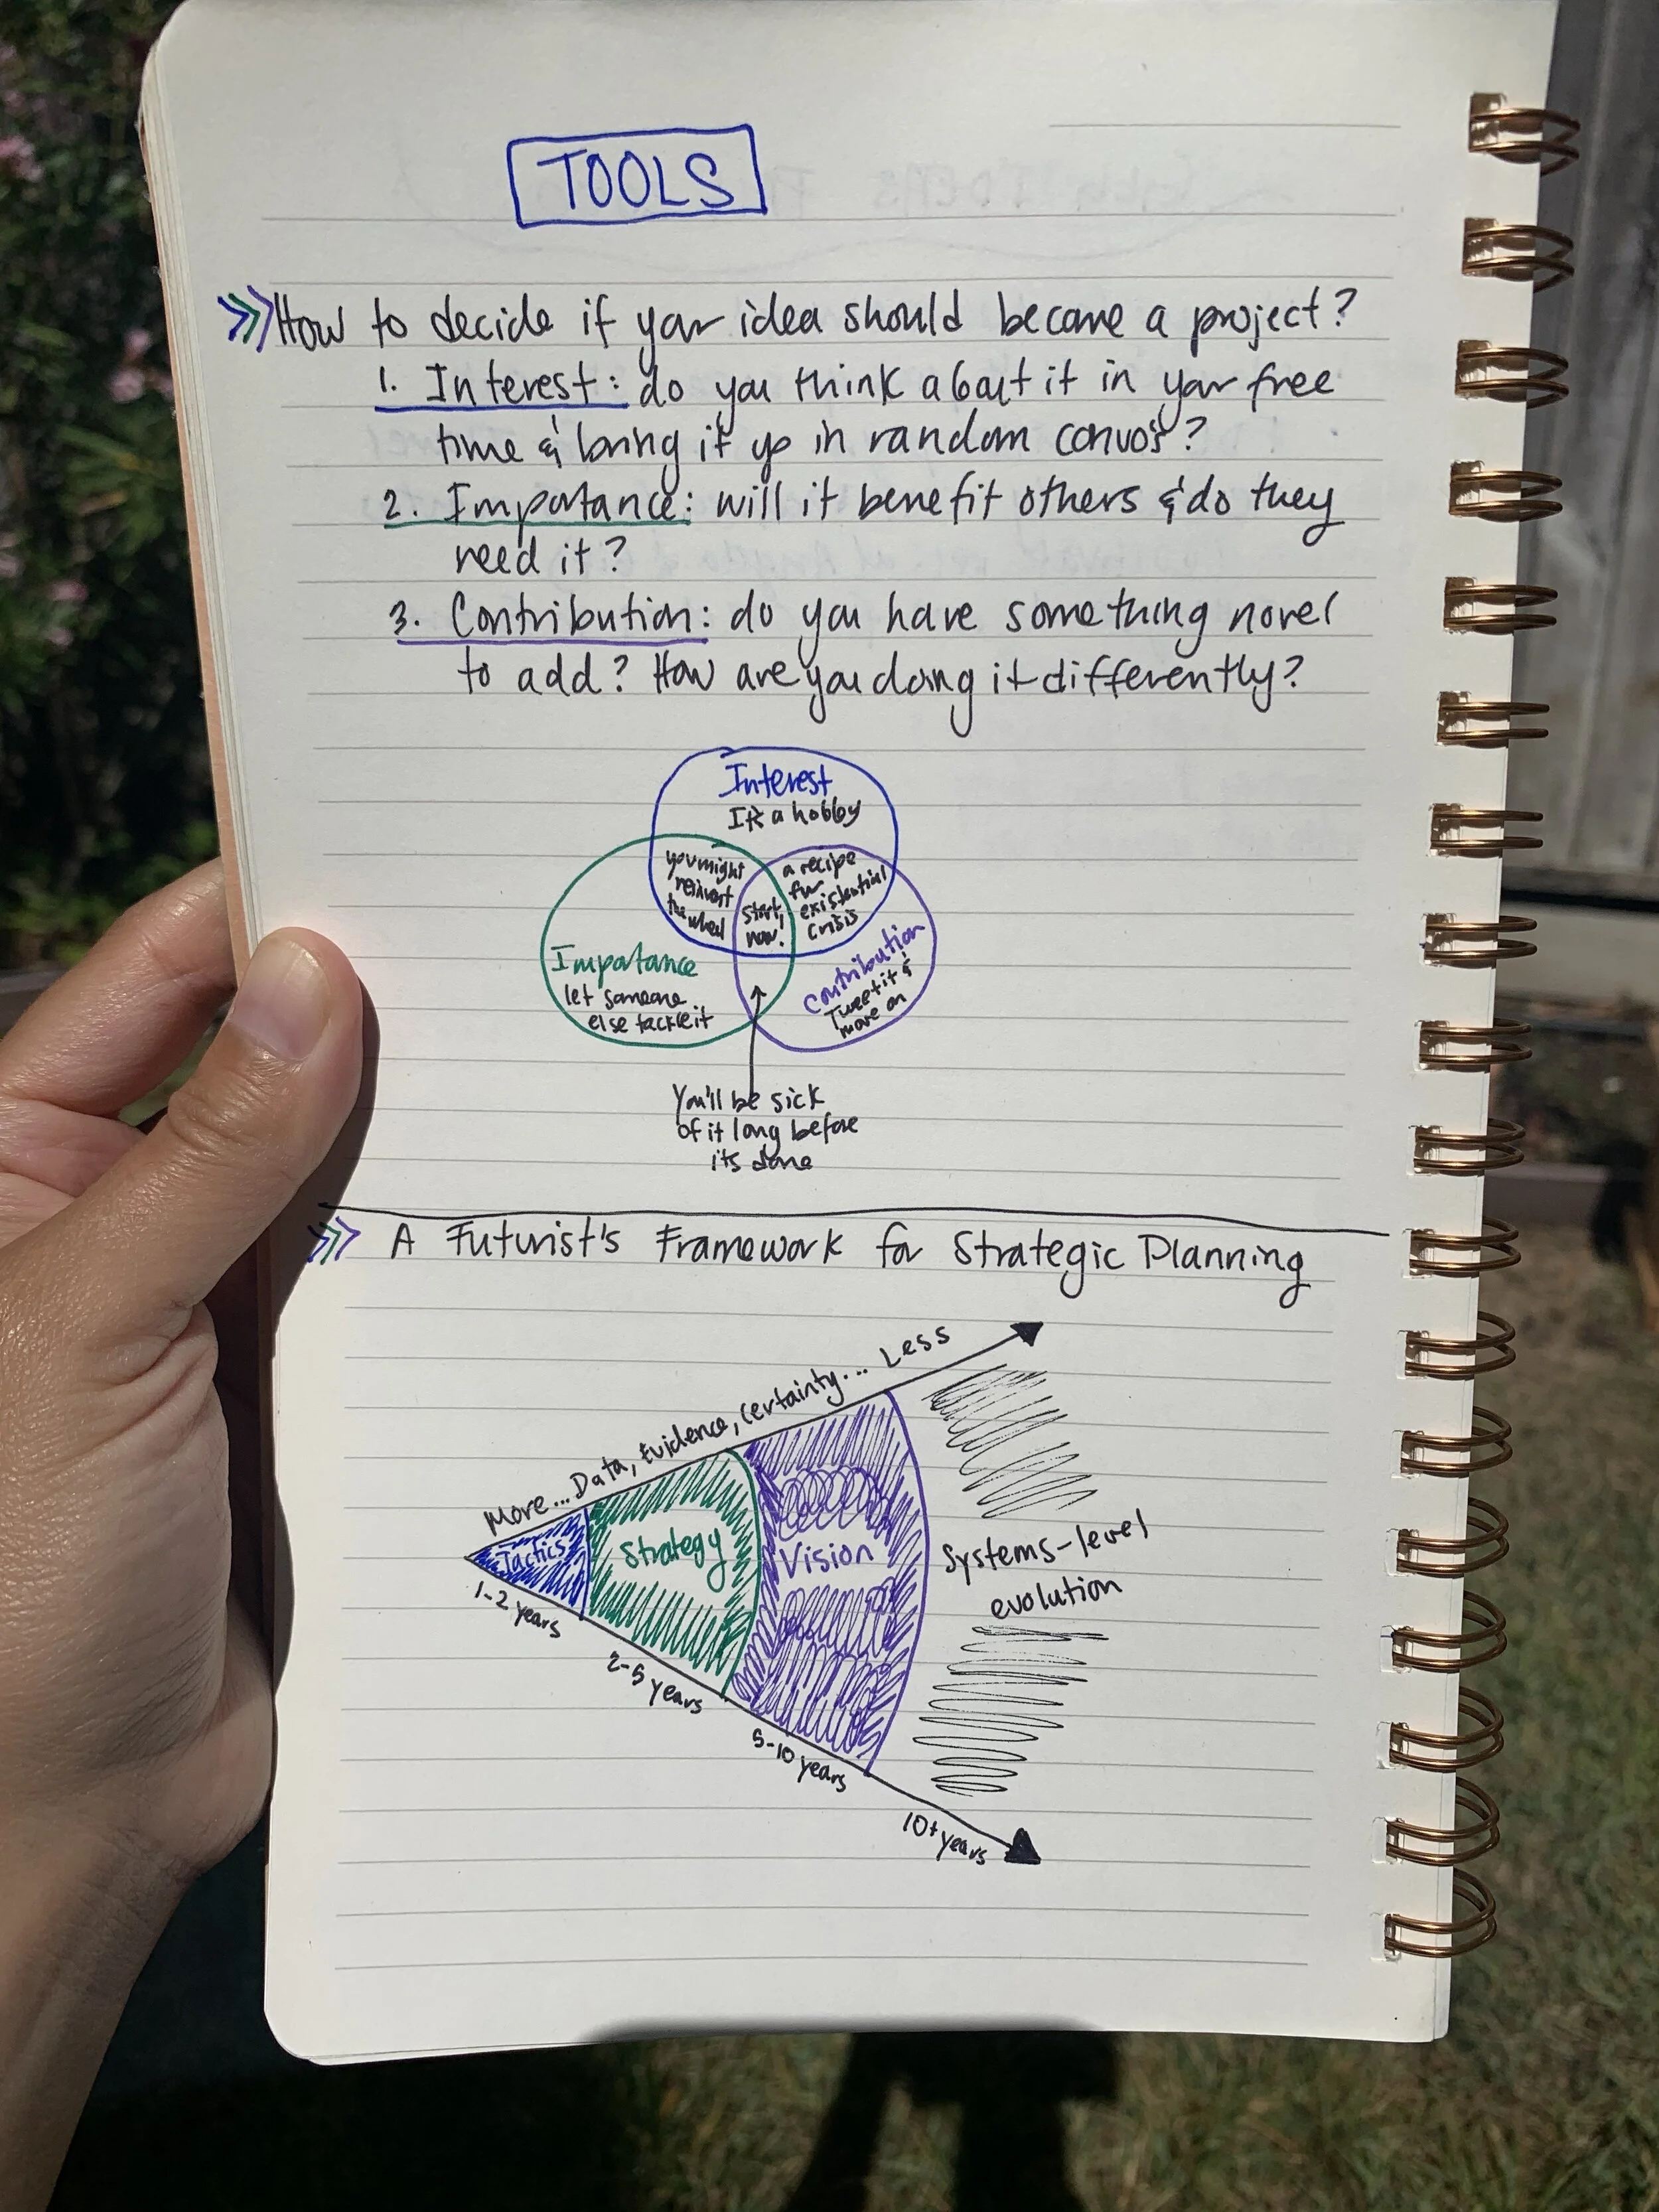 TOOLS
How to decide if your idea should become a project?
1. Interest: do you think about it in your free
time & bring it up in random convos?
2. Importance: will it benefit others & do they
need it?
3. Contribution: do you have something novel
to add? How are you doing it differently?
Interest
It's a hobby
you might
reinvent
the wheel
start
now!
a recipe
for
existential
crisis
Importance
let someone
else tackle it
Contribution
Tweet it &
move on
You'll be sick
of it long before
its done
A Futurist's Framework for Strategic Planning
More... Data, Evidence, Certainty... Less
Tactics
Strategy
Vision
Systems-level
evolution
1-2 years
2-5 years
5-10 years
10+ years